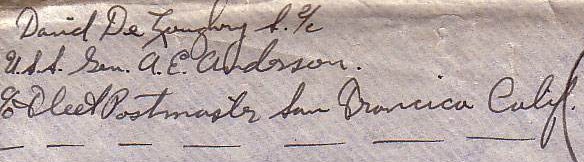 David De Loughry S. 2/c
U.S.S. Gen. A.E. Anderson.
c/o Fleet Postmaster San Francico Calif.